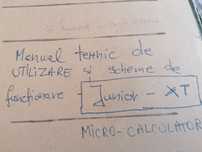 Manual tehnic de
UTILIZARE și scheme de
funcționare - Junior - XT
MICRO-CALCULATOR